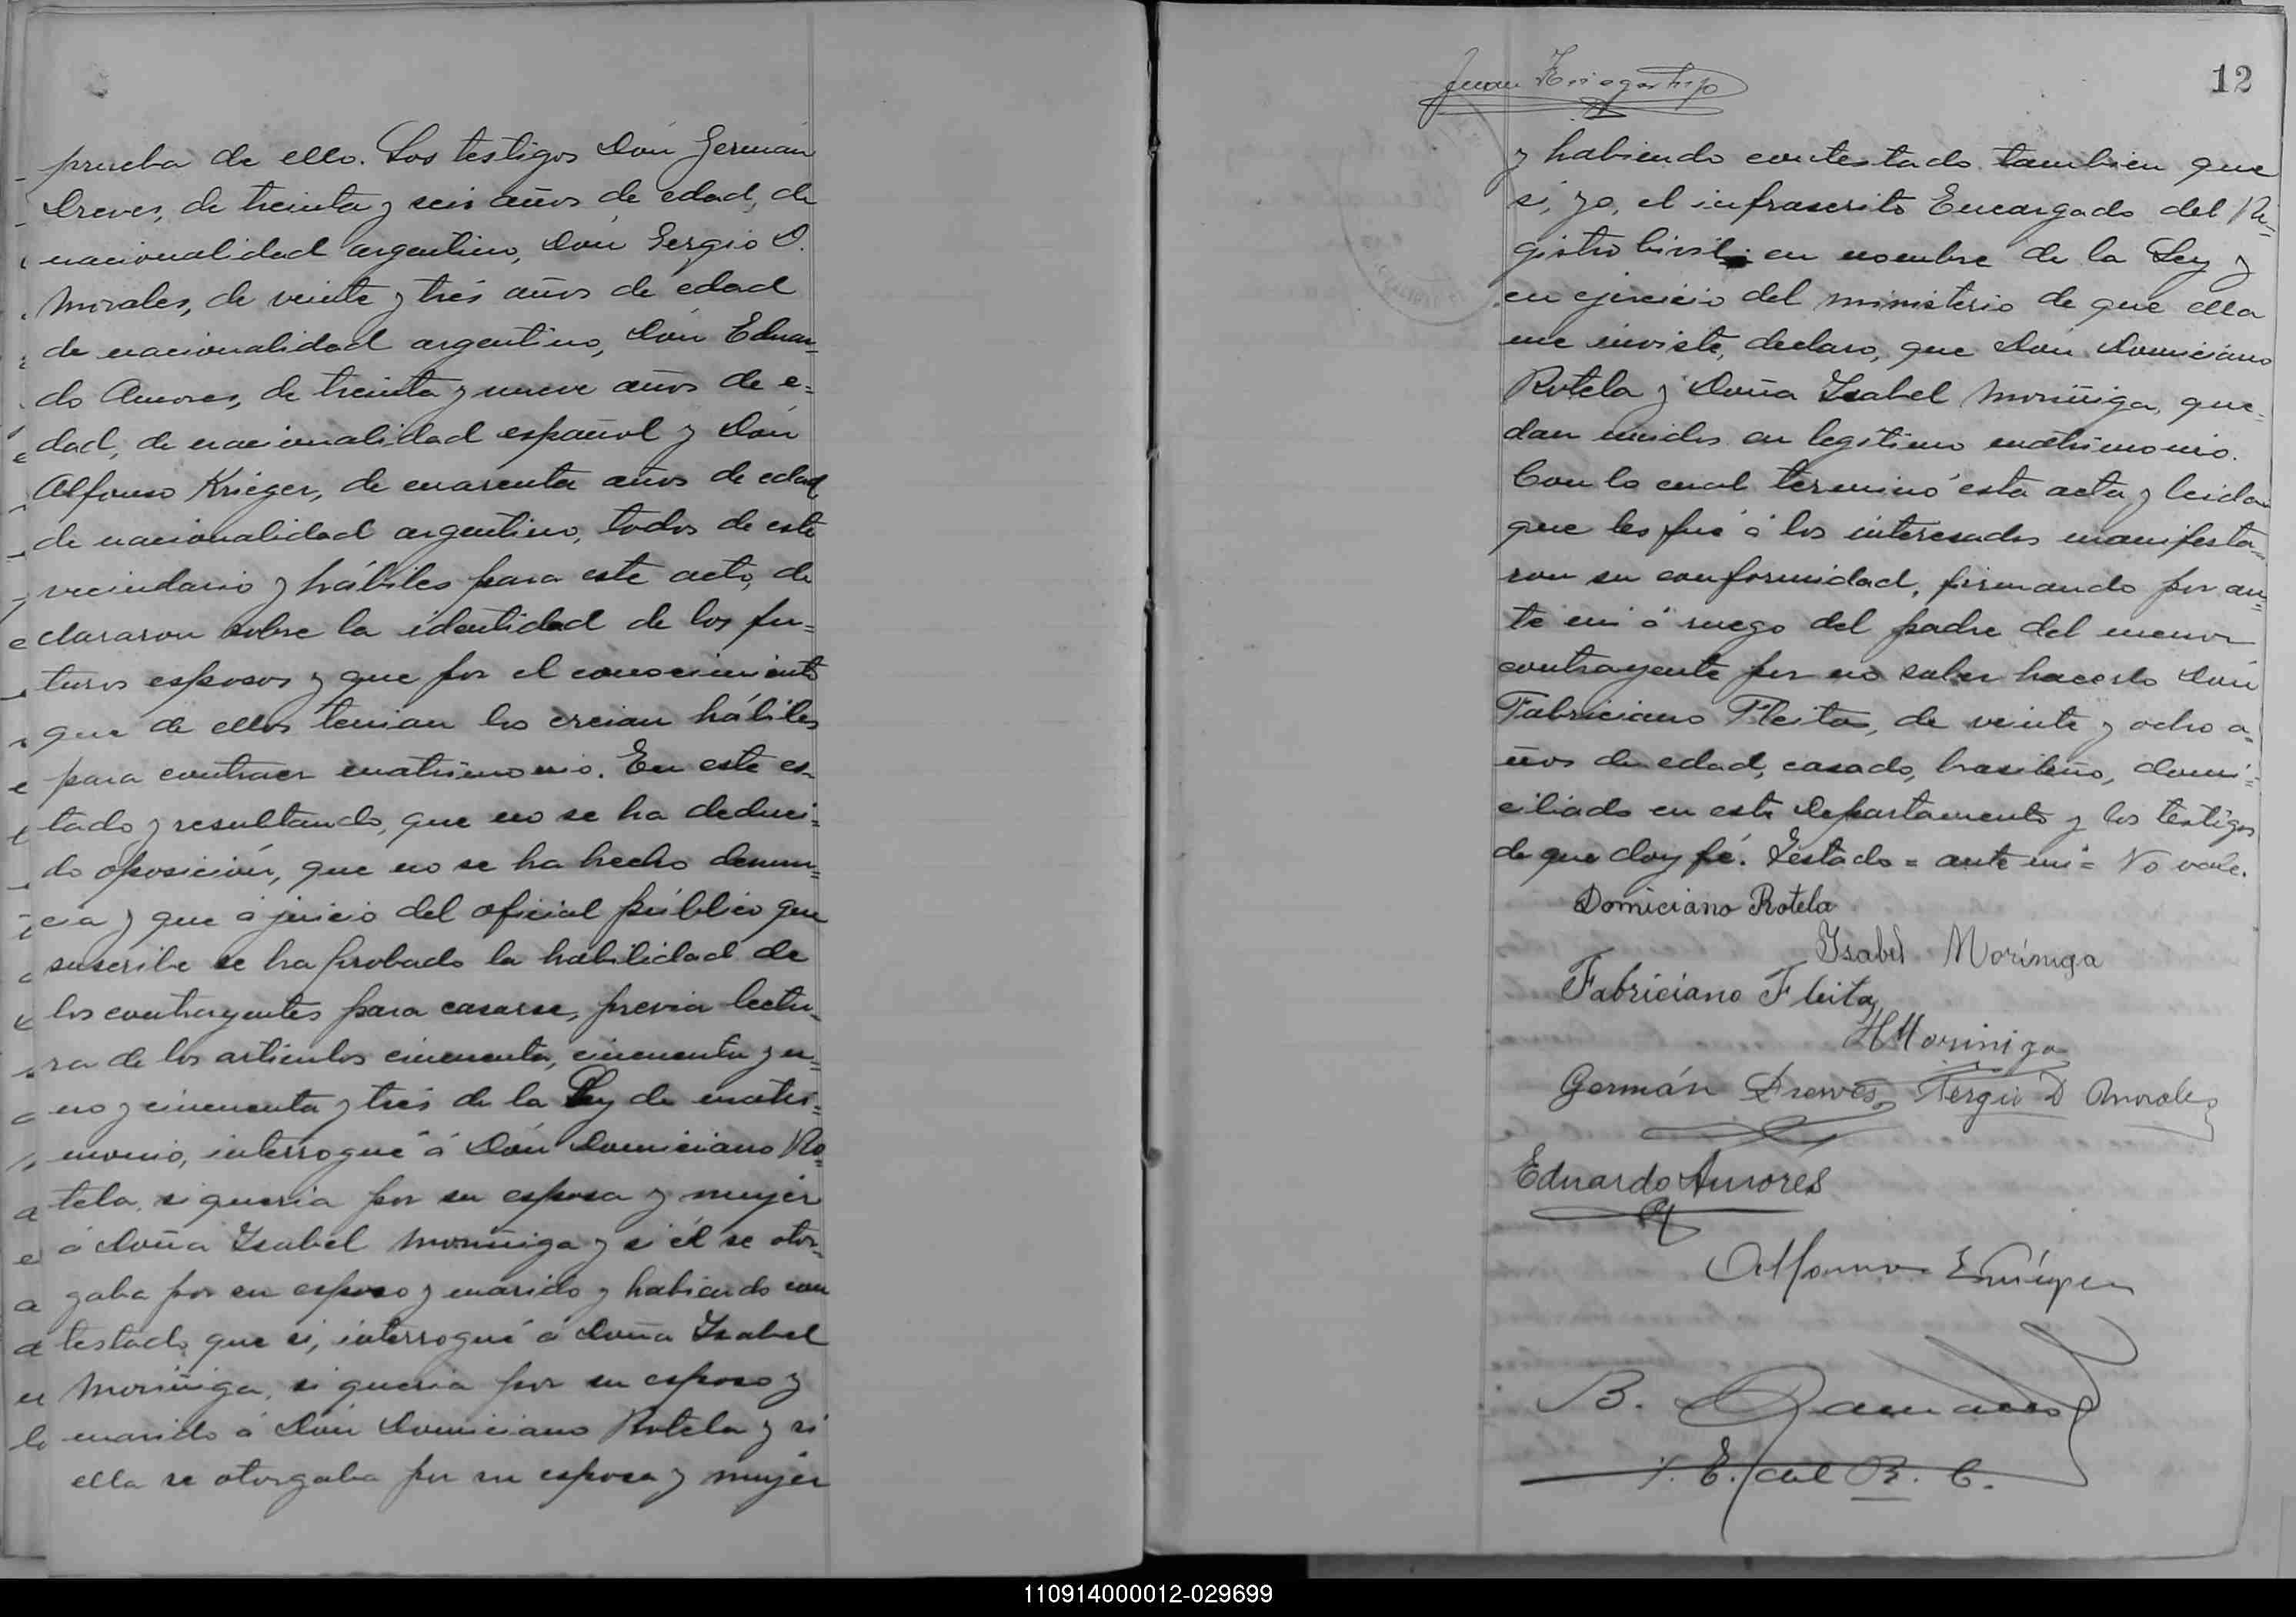 prueba de ello. Los testigos Don Germán
Dreves, de treinta y seis años de edad, de
nacionalidad argentino, Don Sergio D.
Morales, de veinte y trés años de edad
de nacionalidad argentino, Don Eduar=
do Amores, de treinta y nueve años de e=
dad, de nacionalidad español y Don
Alfonso Krieger, de cuarenta años de edad
de nacionalidad argentino, todos de este
vecindario y hábiles para este acto, de
clararon sobre la identidad de los fu=
turos esposos y que por el conocimiento
que de ellos tenian los creian hábiles
para contraer matrimonio. En este es=
tado y resultando, que no se ha deduci=
do oposición, que no se ha hecho denun=
cia y que á juicio del oficial público que
suscribe se ha probado la habilidad de
los contrayentes para casarse, previa lectu=
ra de los articulos cincuenta, cincuenta y u=
no y cincuenta y trés de la Ley de matri=
monio, interrogué á Don Domiciano Ro=
tela, si queria por su esposa y mujer
á Doña Isabel Moriñiga y si él se otor=
gaba por su esposo y marido y habiendo con
testado que si, interrogué á Doña Isabel
Moriñiga, si queria por su esposo y
marido á Don Domiciano Rotela y si
ella se otorgaba por su esposa y mujer
12
Juan Krieger hijo
y habiendo contestado tambien que
si, yo, el infrascrito Encargado del Re=
gistro Civil en nombre de la Ley y
en ejercicio del ministerio de que ella
me inviste, declaro, que Don Domiciano
Rotela y Doña Isabel Moriñiga, que=
dan unidos en legitimo matrimonio.
Con lo cual terminó esta acta y leida
que les fué á los interesados manifesta=
ron su conformidad, firmando por an=
te mi á ruego del padre del menor
contrayente por no saber hacerlo Don
Fabriciano Fleitas, de veinte y ocho a=
ños de edad, casado, brasileño, domi=
ciliado en este Departamento y los testigos
de que doy fé. Testado = ante mi = No vale.
Domiciano Rotela
Isabel Moríniga
Fabriciano Fleitas
H Moriniga
Germán Drewes Sergio D Morales
Eduardo Amores
Alfonso Krieger
B.
E. del R. C.
110914000012-029699